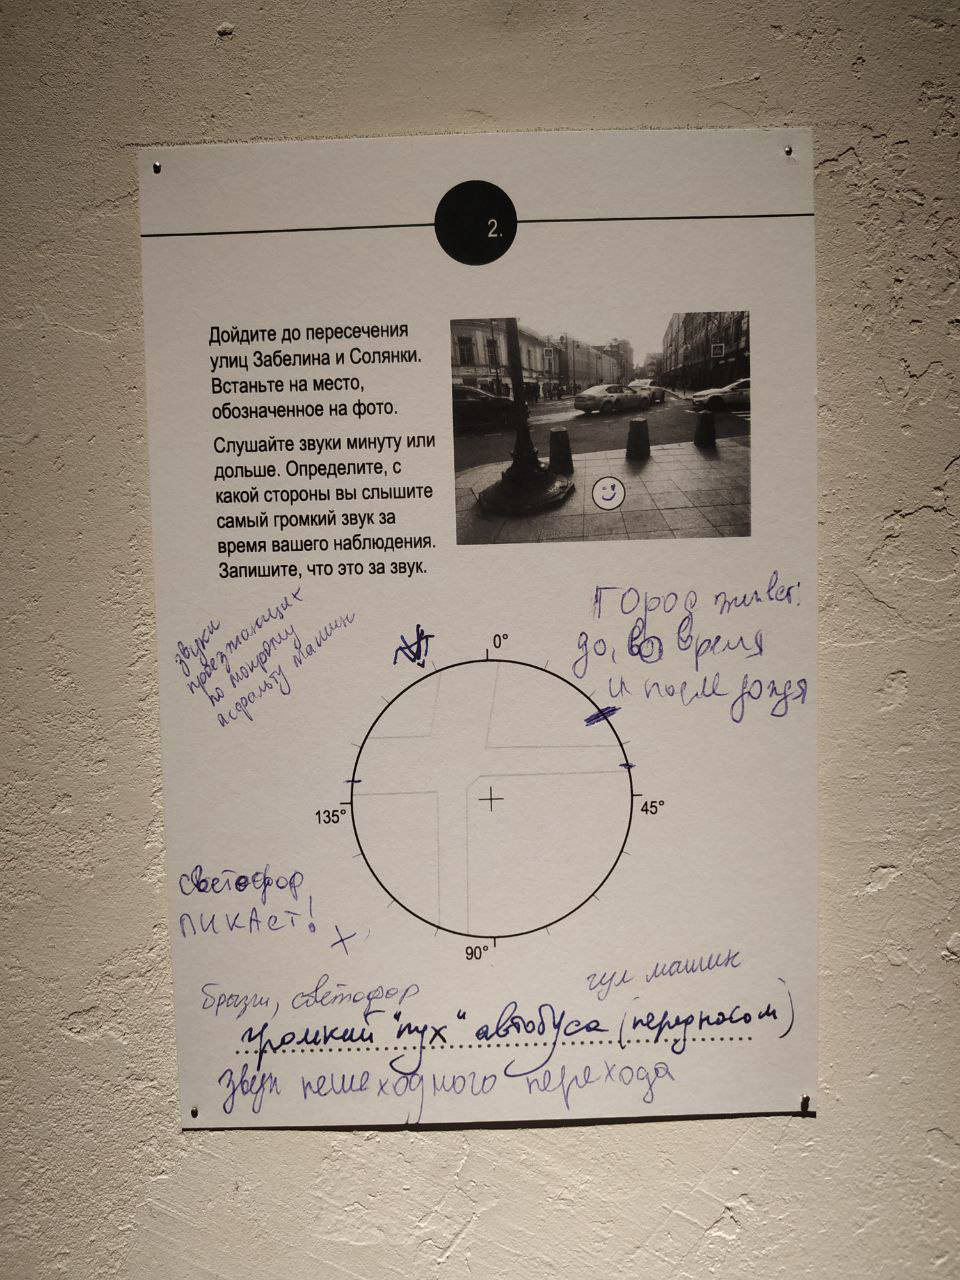 2.
Дойдите до пересечения
улиц Забелина и Солянки.
Встаньте на место,
обозначенное на фото.
Слушайте звуки минуту или
дольше. Определите, с
какой стороны вы слышите
самый громкий звук за
время вашего наблюдения.
Запишите, что это за звук.
звуки
проезжающих
по мокрому
асфальту машин
ГОРОД живет:
до, во время
и после дождя
0°
135°
45°
90°
светофор
ПИКАЕТ!
брызги, светофор
гул машин
громкий "пух" автобуса (перед носом)
звук пешеходного перехода